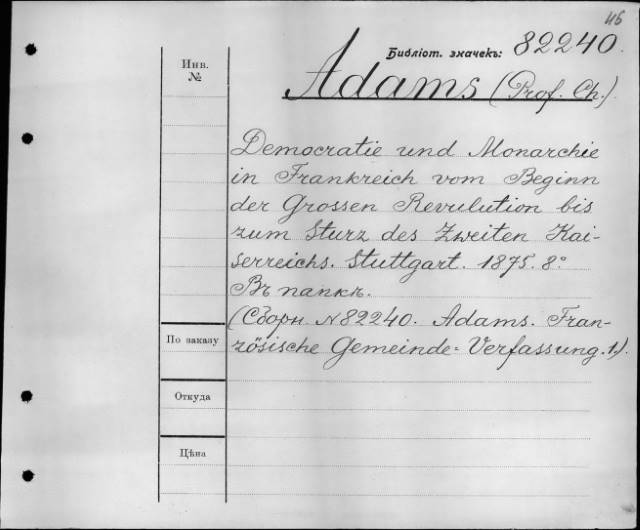 46
Библіот. значекъ: 82240.
Инв.
№
Adams (Prof. Ch.)
Democratie und Monarchie
in Frankreich vom Beginn
der Grossen Revulution bis
zum Sturz des Zweiten Kai-
serreichs. Stuttgart. 1875. 8°
Въ папкѣ.
(Сборн. N 82240. Adams. Fran-
По заказу
zösische Gemeinde-Verfassung. 1.)
Откуда
Цѣна